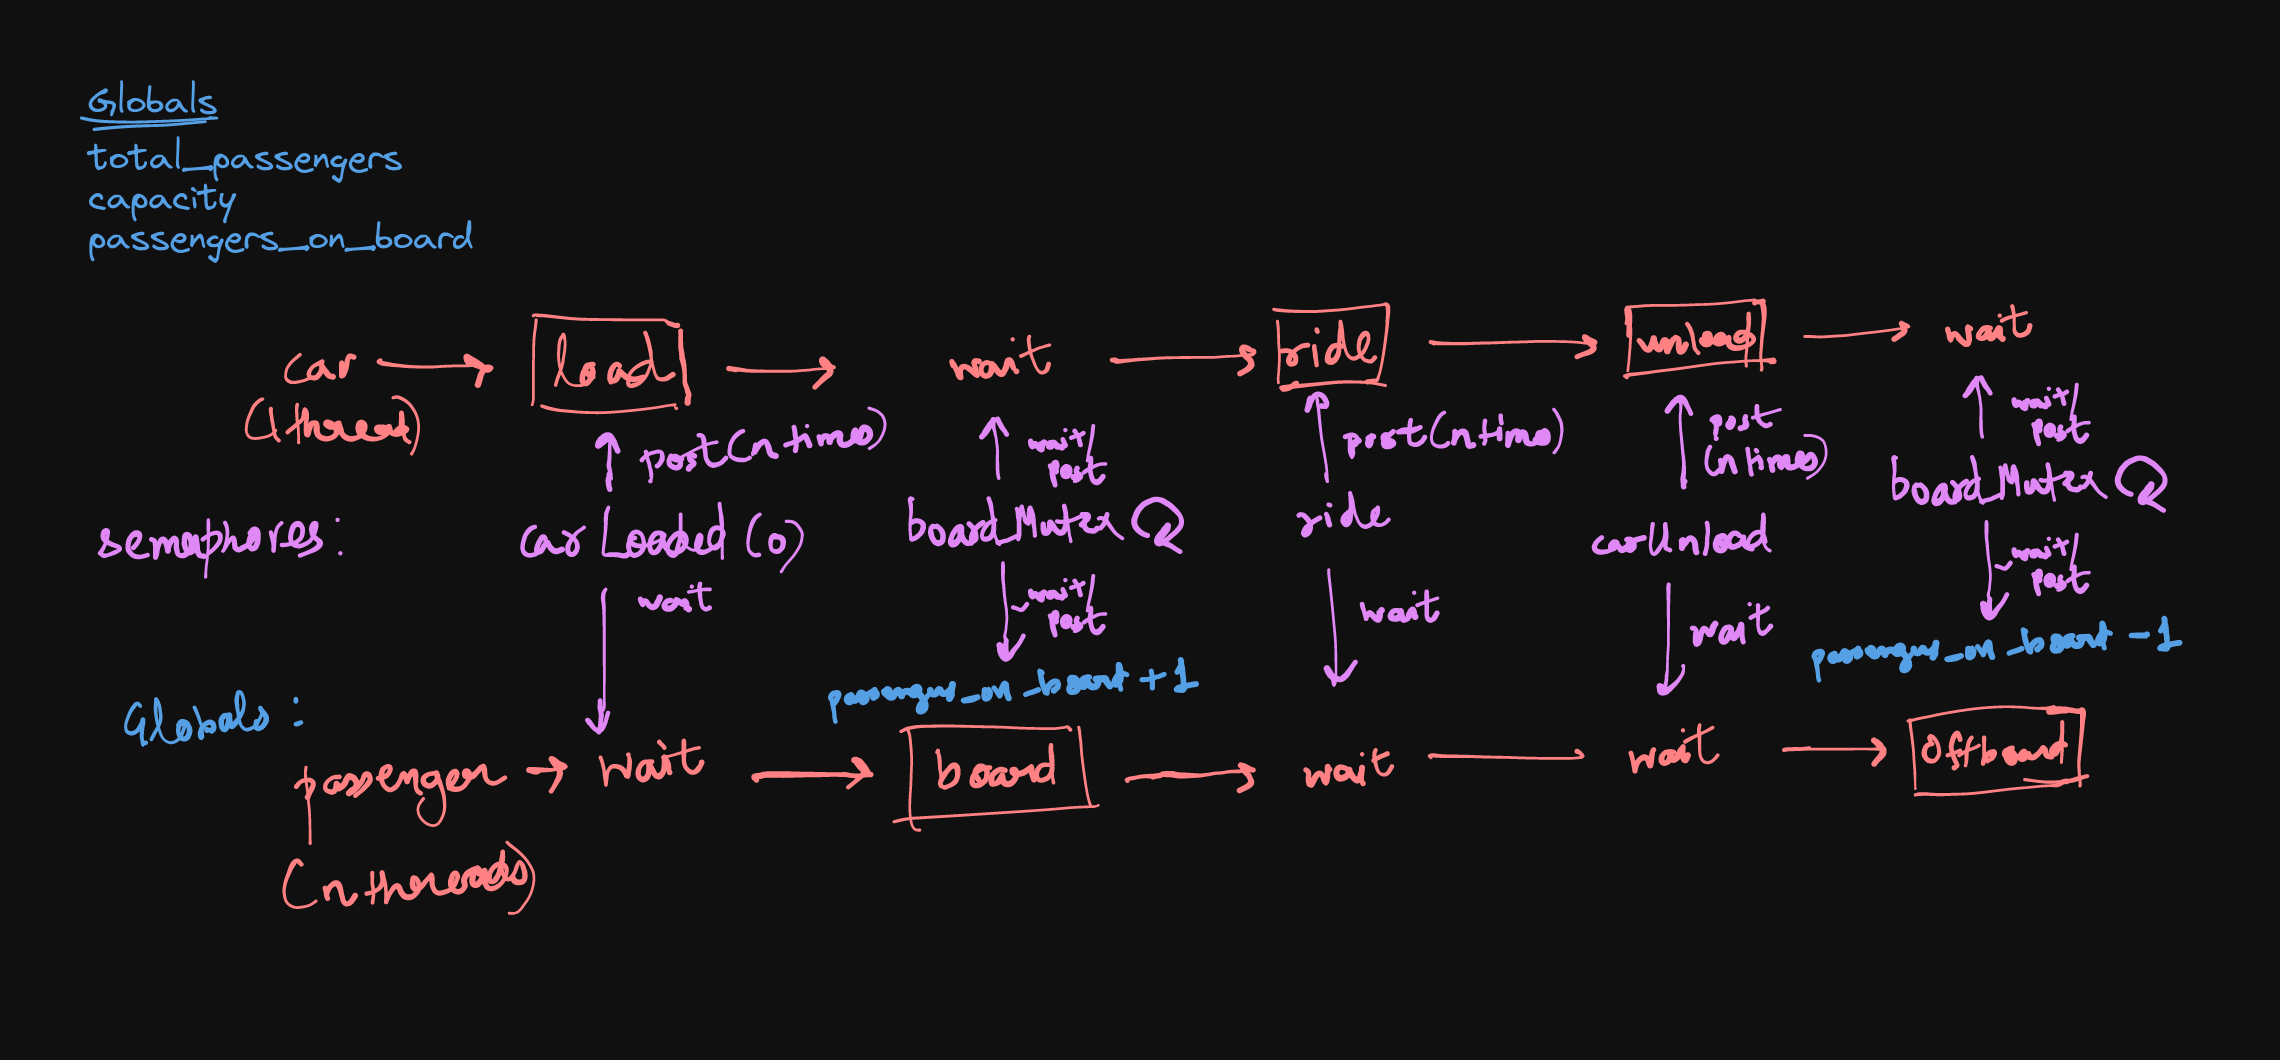 Globals
total_passengers
capacity
passengers_on_board
car → load → wait → ride → unload → wait
(1 thread)
post(n times)
wait/
post
post(n times)
post
(n times)
wait/
post
semaphores:
carLoaded (0)
boardMutex
ride
carUnload
boardMutex
wait
wait/
post
wait
wait
wait/
post
Globals:
passengers_on_board +1
passengers_on_board -1
passenger → wait → board → wait → wait → offboard
(n threads)